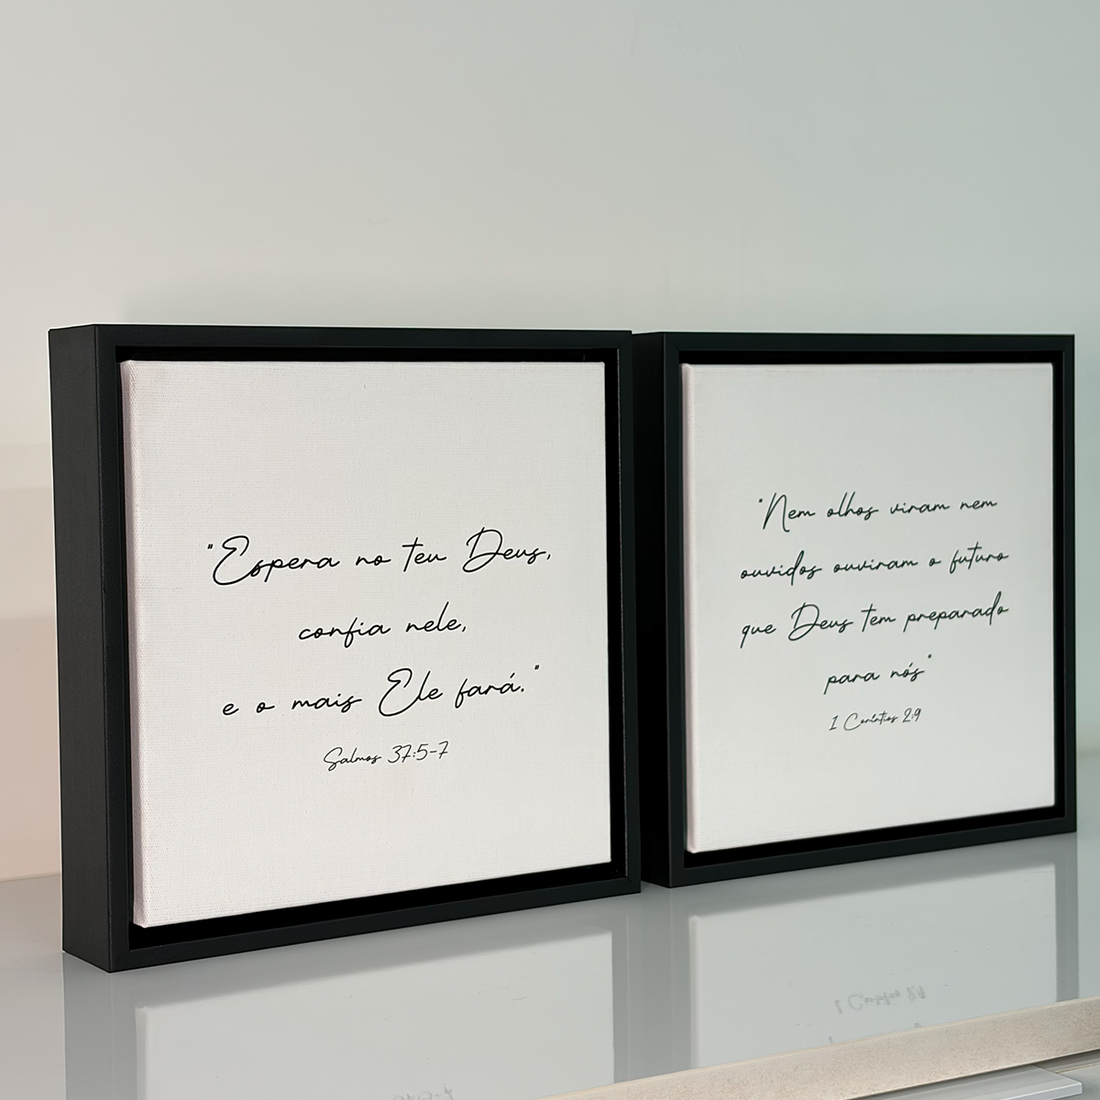 "Espera no teu Deus,
confia nele,
e o mais Ele fará."
Salmos 37:5-7
"Nem olhos viram nem
ouvidos ouviram o futuro
que Deus tem preparado
para nós"
1 Coríntios 2:9